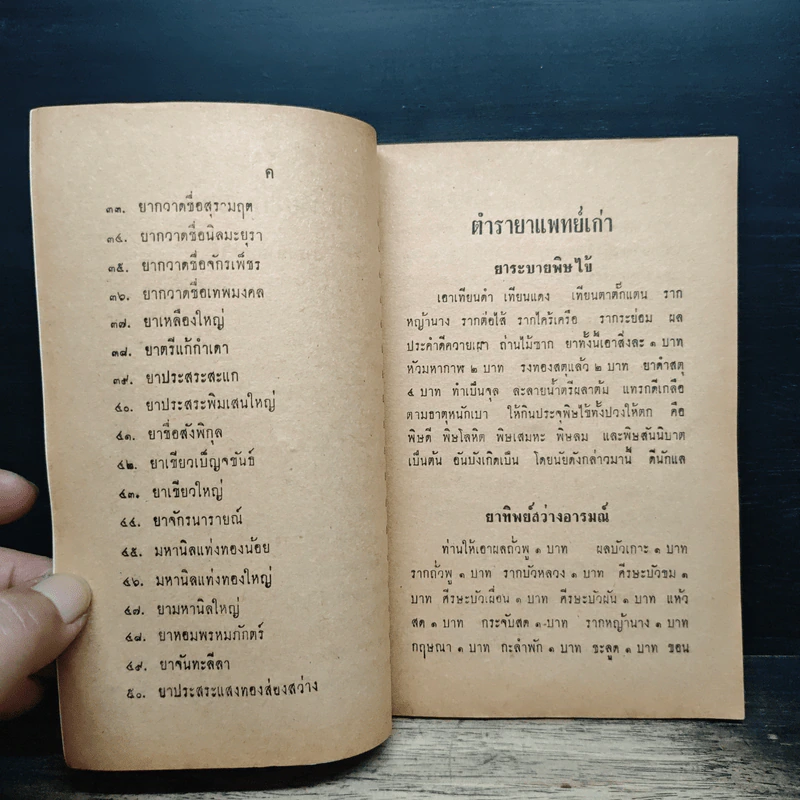 ค
๓๓. ยากวาดชื่อสุรามฤต
๓๔. ยากวาดชื่อนิลมะยุรา
๓๕. ยากวาดชื่อจักรเพ็ชร
๓๖. ยากวาดชื่อเทพมงคล
๓๗. ยาเหลืองใหญ่
๓๘. ยาตรีแก้กำเดา
๓๙. ยาประสระสะแก
๔๐. ยาประสระพิมเสนใหญ่
๔๑. ยาชื่อสังพิกุล
๔๒. ยาเขียวเบ็ญจขันธ์
๔๓. ยาเขียวใหญ่
๔๔. ยาจักรนารายณ์
๔๕. มหานิลแท่งทองน้อย
๔๖. มหานิลแท่งทองใหญ่
๔๗. ยามหานิลใหญ่
๔๘. ยาหอมพรหมภักตร์
๔๙. ยาจันทะลีลา
๕๐. ยาประสระแสงทองส่องสว่าง
ตำรายาแพทย์เก่า
ยาระบายพิษไข้
เอาเทียนดำ เทียนแดง เทียนตาตั๊กแตน ราก
หญ้านาง รากต่อไส้ รากไคร้เครือ รากระย่อม ผล
ประคำดีควายเผา ถ่านไม้ซาก ยาทั้งนี้เอาสิ่งละ ๑ บาท
หัวมหากาฬ ๒ บาท รงทองสตุแล้ว ๒ บาท ยาดำสตุ
๔ บาท ทำเป็นจุล ละลายน้ำตรีผลาต้ม แทรกดีเกลือ
ตามธาตุหนักเบา ให้กินประจุพิษไข้ทั้งปวงให้ตก คือ
พิษดี พิษโลหิต พิษเสมหะ พิษลม และพิษสันนิบาต
เป็นต้น อันบังเกิดเป็น โดยนัยดังกล่าวมานี้ ดีนักแล
ยาทิพย์สว่างอารมณ์
ท่านให้เอาผลถั่วพู ๑ บาท ผลบัวเกาะ ๑ บาท
รากถั่วพู ๑ บาท รากบัวหลวง ๑ บาท ศีรษะบัวขม ๑
บาท ศีรษะบัวเผื่อน ๑ บาท ศีรษะบัวผัน ๑ บาท แห้ว
สด ๑ บาท กระจับสด ๑ บาท รากหญ้านาง ๑ บาท
กฤษณา ๑ บาท กะลำพัก ๑ บาท ชะลูด ๑ บาท ขอน